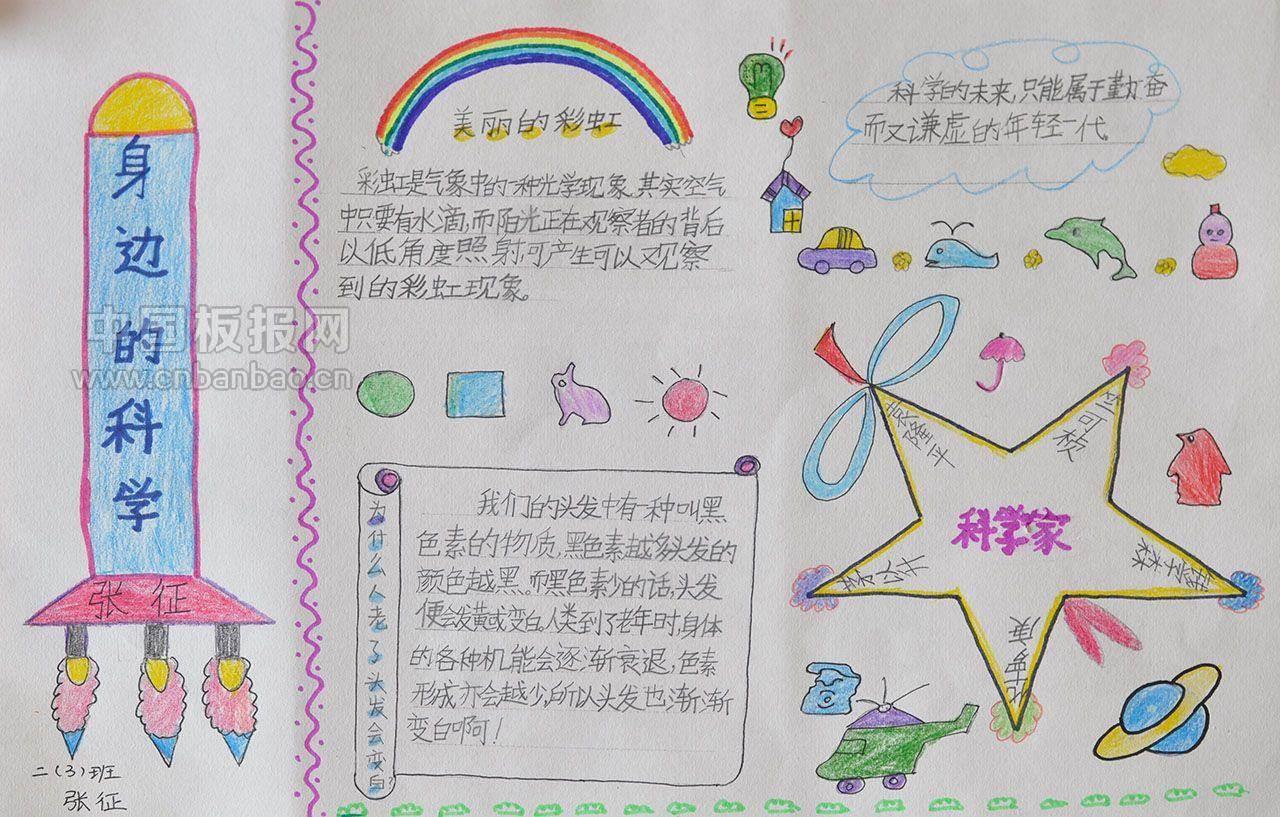 身边的科学
张征
二(3)班
张征
中国板报网
www.cnbanbao.cn
美丽的彩虹
彩虹是气象中的一种光学现象。其实空气
中只要有水滴,而阳光正在观察者的背后
以低角度照射,可产生可以观察
到的彩虹现象。
为什么人老了头发会变白?
我们的头发中有一种叫黑
色素的物质,黑色素越多头发的
颜色越黑。而黑色素少的话,头发
便会发黄或变白。人类到了老年时,身体
的各种机能会逐渐衰退,色素
形成亦会越少,所以头发也渐渐
变白啊!
科学的未来,只能属于勤奋
而又谦虚的年轻一代。
袁隆平
竺可桢
科学家